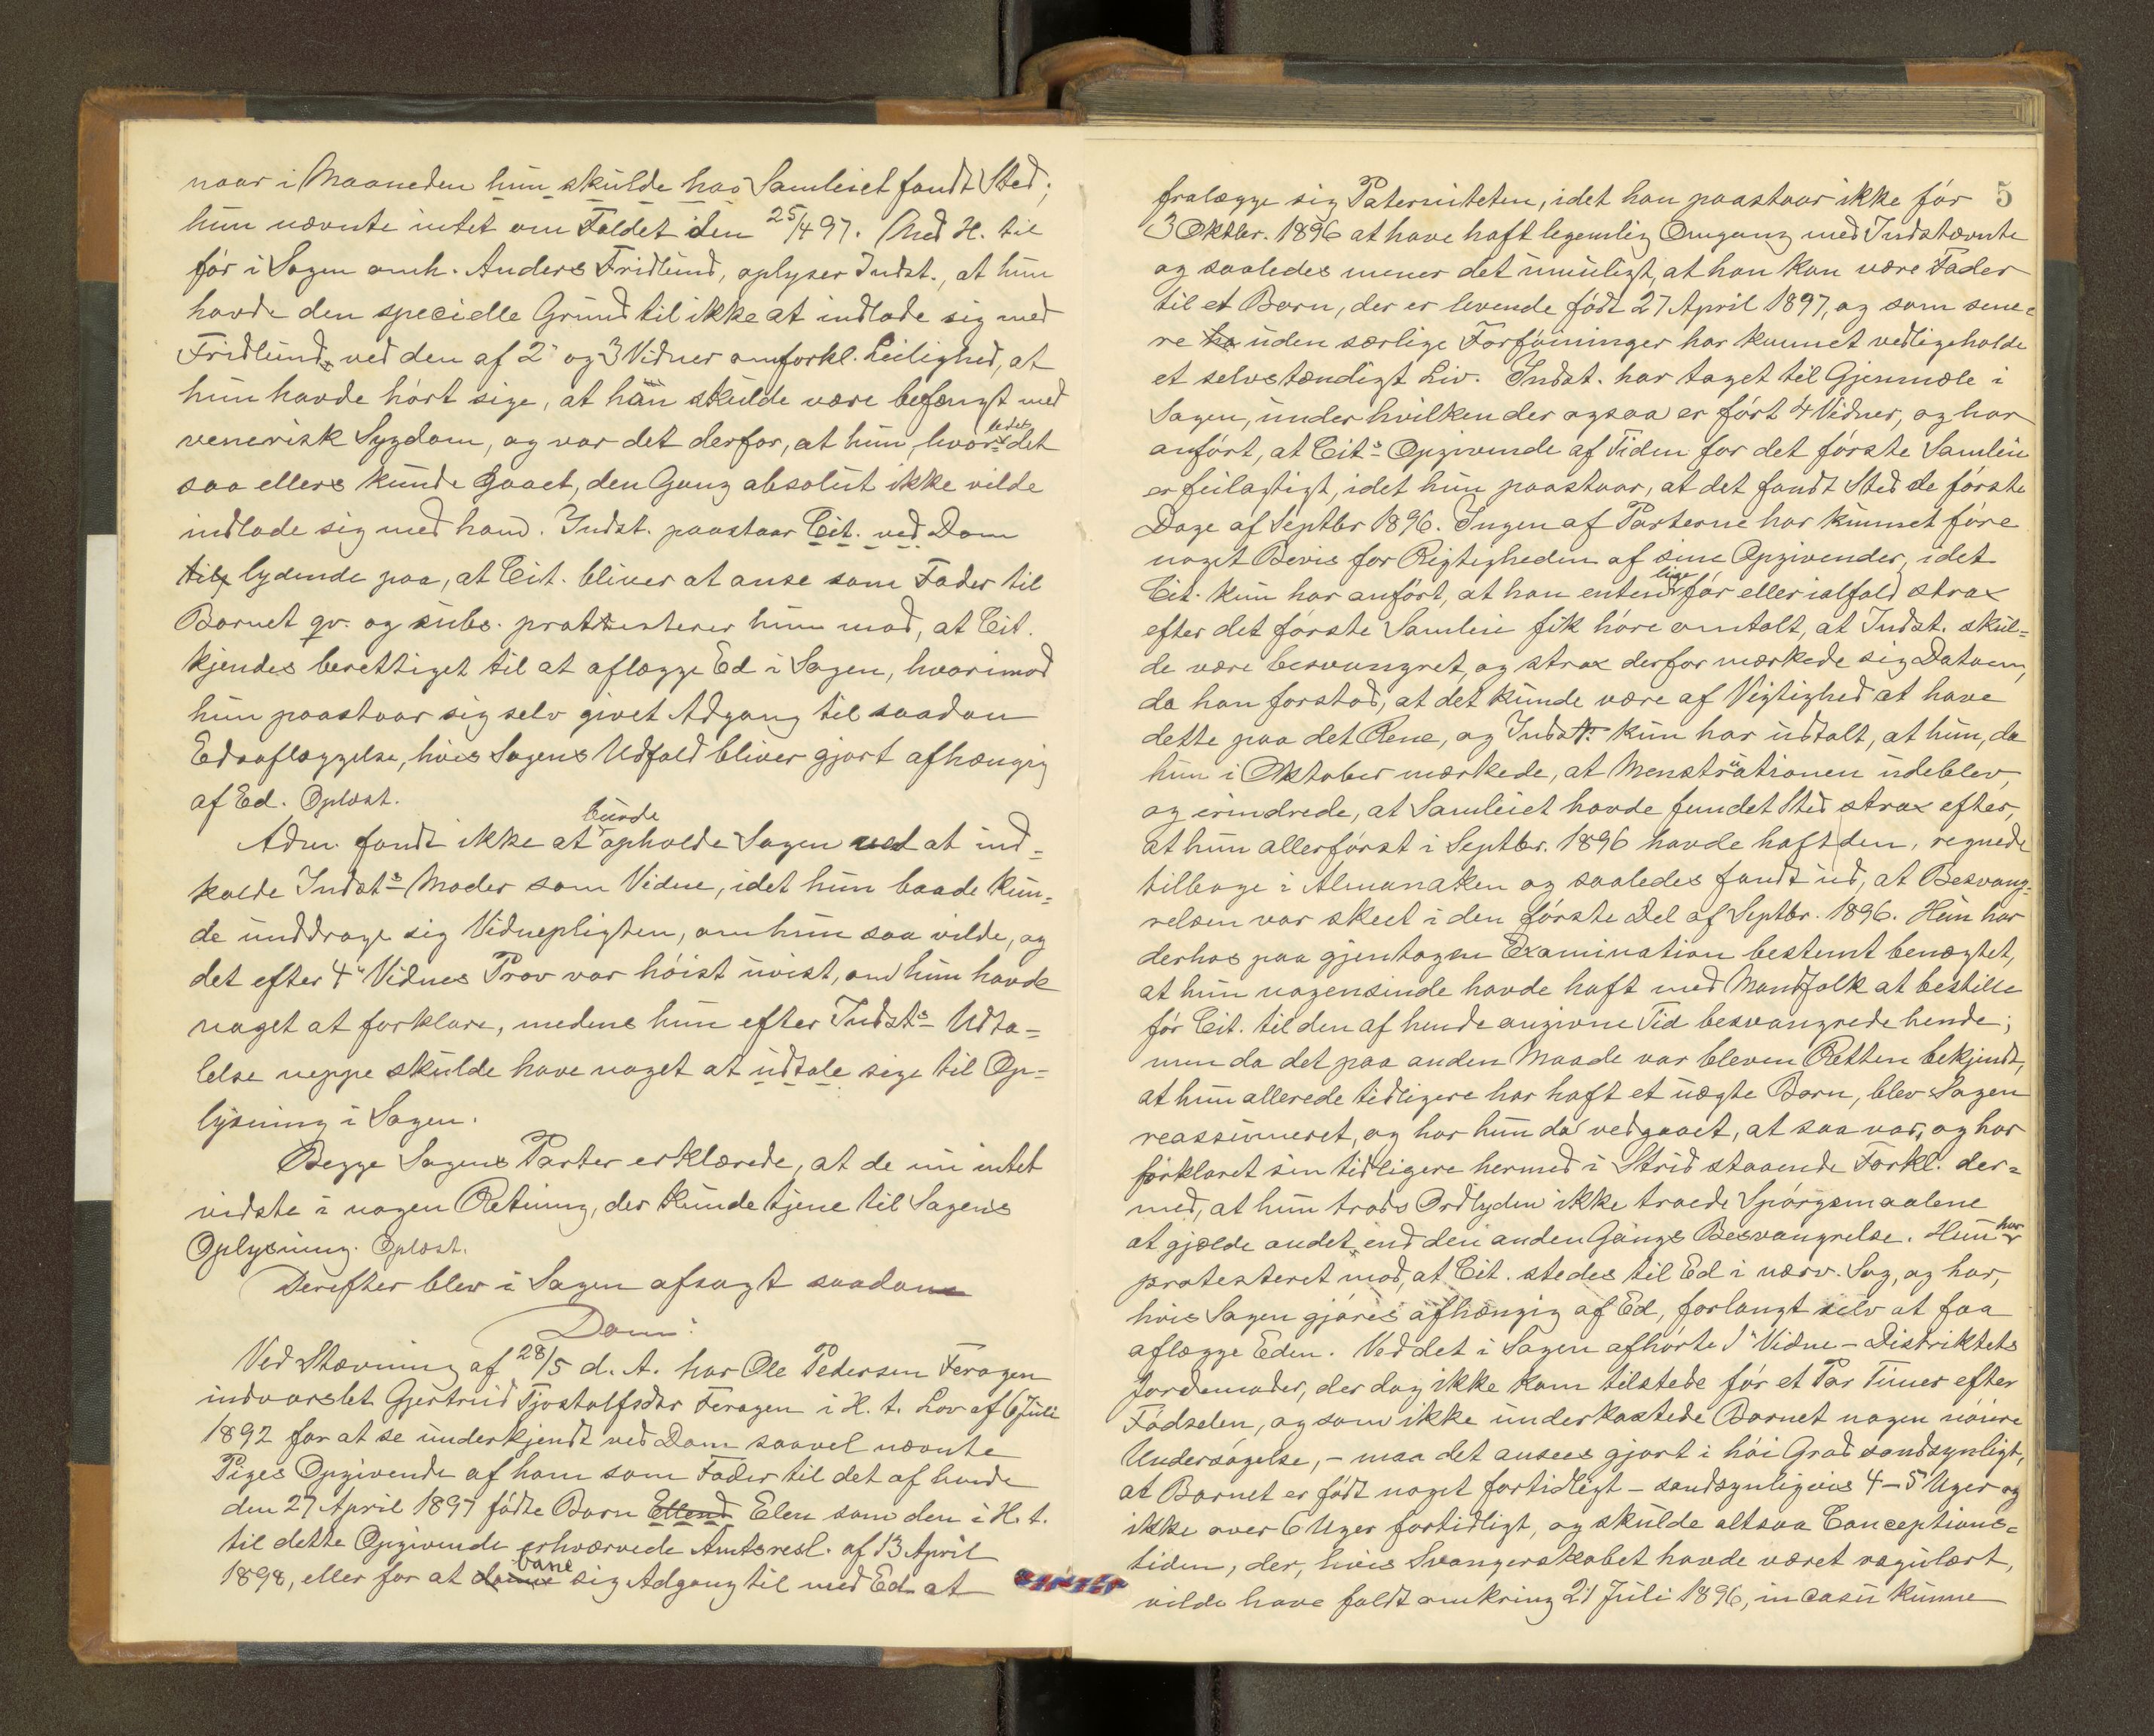 naar i Maaneden hun skulde hav Samleiet fandt Sted;
hun nævnte intet om Faldet iden 25/4 97. Med H. til
før i Sagen omh. Anders Fridlund, oplyser Indst., at hun
havde den specielle Grund til ikke at indlade sig med
Fridlund ved den af 2' og 3 Vidner omforkl. Leilighed, at
hun havde hørt sige, at han skulde være befængt med
venerisk Sygdom, og var det derfor, at hun, hvorledes det
saa ellers kunde gaaet, den Gang absolut ikke vilde
indlade sig med ham. Indst. paastaar Cit. ved Dom
til lydende paa, at Cit. bliver at anse som Fader til
Barnet qv. og subs. protesterer hun mod, at Cit.
kjendes berettiget til at aflægge Ed i Sagen, hvorimod
hun paastaar sig selv givet Adgang til saadan
Edsaflæggelse, hvis Sagens Udfald bliver gjort afhængig
af Ed. Oplæst.
Adm. fandt ikke at burde opholde Sagen ved at ind-
kalde Indsts Moder som Vidne, idet hun baade kun-
de unddrage sig Vidnepligten, om hun saa vilde, og
det efter 4' Vidnes Prov var høist uvist, om hun havde
noget at forklare, medens hun efter Indsts Udta-
lelse neppe skulde have noget at udtale sige til Op-
lysning i Sagen.
Begge Sagens Parter erklærede, at de nu intet
vidste i nogen Retning, der kunde tjene til Sagens
Oplysning. Oplæst.
Derefter blev i Sagen afsagt saadan
Dom:
Ved Stævning af 28/5 d. A. har Ole Pedersen Feragen
indvarslet Gjertrud Tjostolfsdtr Feragen i H. t. Lov af 6 Juli
1892 for at se underkjendt ved Dom saavel nævnte
Piges Opgivende af ham som Fader til det af hende
den 27 April 1897 fødte Barn Ellend Elen som den i H. t.
til dette Opgivende erhværvede Amtsresl. af 13 April
1898, eller for at bane sig Adgang til med Ed at
5
fralægge sig Paterniteten, idet han paastaar ikke før
3 Oktbr. 1896 at have haft legemlig Omgang med Indstævnte
og saaledes mener det umuligt, at han kan være Fader
til et Barn, der er levende født 27 April 1897, og som sene-
re ha uden særlige Forføininger har kunnet vedligeholde
et selvstændigt Liv. Indst. har taget til Gjenmæle i
Sagen, under hvilken der ogsaa er ført 4 Vidner, og har
anført, at Cits Opgivende af Tiden for det første Samleie
er feilagtigt, idet hun paastaar, at det fandt Sted de første
Dage af Septbr 1896. Ingen af Parterne har kunnet føre
noget Bevis for Rigtigheden af sine Opgivender, idet
Cit. kun har anført, at han enten lige før eller ialfald strax
efter det første Samleie fik høre omtalt, at Indst. skul-
de være besvangret, og strax derfor mærkede sig Datoen,
da han forstod, at det kunde være af Vigtighed at have
dette paa det Rene, og Indst. kun har udtalt, at hun, da
hun i Oktober mærkede, at Menstruationen udeblev,
og erindrede, at Samleiet havde fundet Sted strax efter,
at hun allerførst i Septbr. 1896 havde haft den, regnede
tilbage i Almanaken og saaledes fandt ud, at Besvang-
relsen var skeet i den første Del af Septbr. 1896. Hun har
derhos paa gjentagen Examination bestemt benægtet,
at hun nogensinde havde haft med Mandfolk at bestille
før Cit. til den af hende angivne Tid besvangrede hende;
men da det paa anden Maade var bleven Retten bekjendt,
at hun allerede tidligere har haft et uægte Barn, blev Sagen
reassumeret, og har hun da vedgaaet, at saa var, og har
forklaret sin tidligere hermed i Strid staaende Forkl. der-
med, at hun trods Ordlyden ikke troede Spørgsmaalene
at gjælde andet end den anden Gangs Besvangrelse. Hun har
protesteret mod, at Cit. stedes til Ed i nærv. Sag, og har,
hvis Sagen gjøres afhængig af Ed, forlangt selv at faa
aflægge Eden. Ved det i Sagen afhørte 1' Vidne - Distriktets
Jordemoder, der dog ikke kom tilstede før et Par Timer efter
Fødselen, og som ikke underkastede Barnet nogen nøiere
Undersøgelse, - maa det ansees gjort i høi Grad sandsynligt,
at Barnet er født noget fortidligt - sandsynligvis 4-5 Uger og
ikke over 6 Uger fortidligt, og skulde altsaa Conceptions-
tiden, der, hvis Svangerskabet havde været regulært,
vilde have faldt omkring 21 Juli 1896, in casu kunne